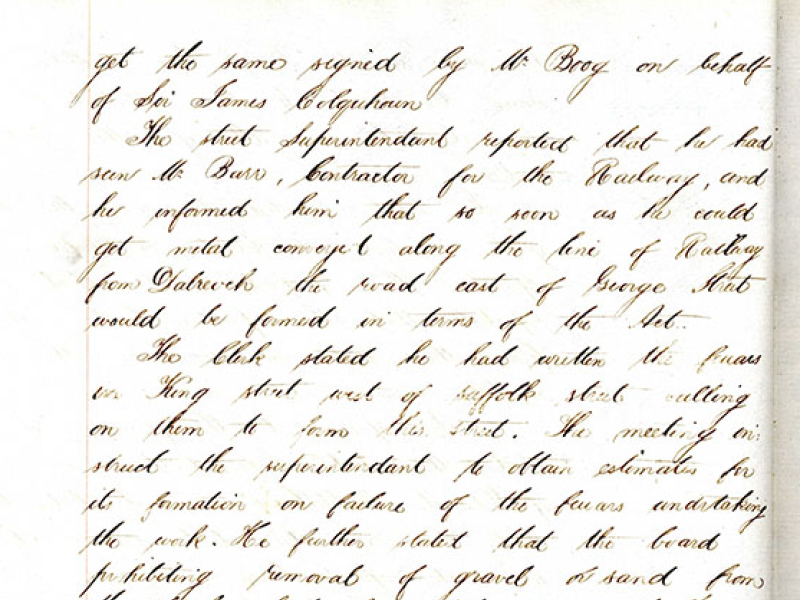 get the same signed by Mr. Boog on behalf
of Sir James Colquhoun
The street Superintendant reported that he had
seen Mr. Barr, Contractor for the Railway, and
he informed him that so soon as he could
get metal conveyed along the line of Railway
from Dalreoch the road east of George Street
would be formed in terms of the Act.
The Clerk stated he had written the feuars
on King street west of Suffolk street calling
on them to form this street. The meeting in:
struct the superintendant to obtain estimates for
its formation on failure of the feuars undertaking
the work. He further stated that the board
prohibiting removal of gravel or sand from